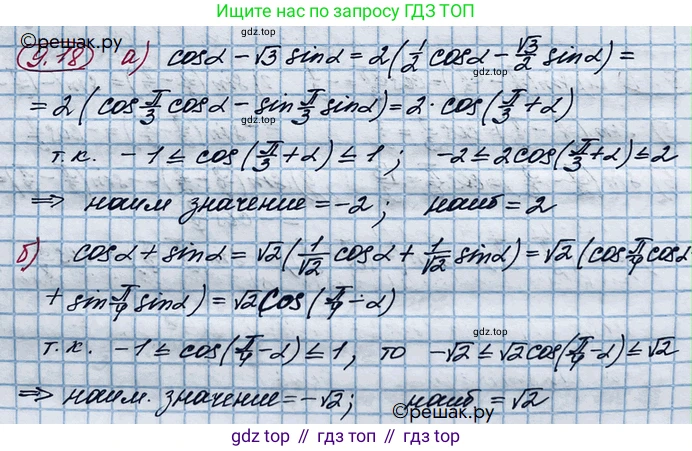 Ищите нас по запросу ГДЗ ТОП
©решак.ру
gdz.top
9.18 а) cosα - √3 sinα = 2(1/2 cosα - √3/2 sinα) =
= 2(cos π/3 cosα - sin π/3 sinα) = 2·cos(π/3 + α)
т.к. -1 ≤ cos(π/3 + α) ≤ 1; -2 ≤ 2cos(π/3 + α) ≤ 2
⇒ наим значение = -2; наиб = 2
б) cosα + sinα = √2(1/√2 cosα + 1/√2 sinα) = √2(cos π/4 cosα
+ sin π/4 sinα) = √2 cos(π/4 - α)
т.к. -1 ≤ cos(π/4 - α) ≤ 1, то -√2 ≤ √2cos(π/4 - α) ≤ √2
⇒ наим. значение = -√2; наиб = √2
©решак.ру
gdz топ // гдз топ // gdz.top